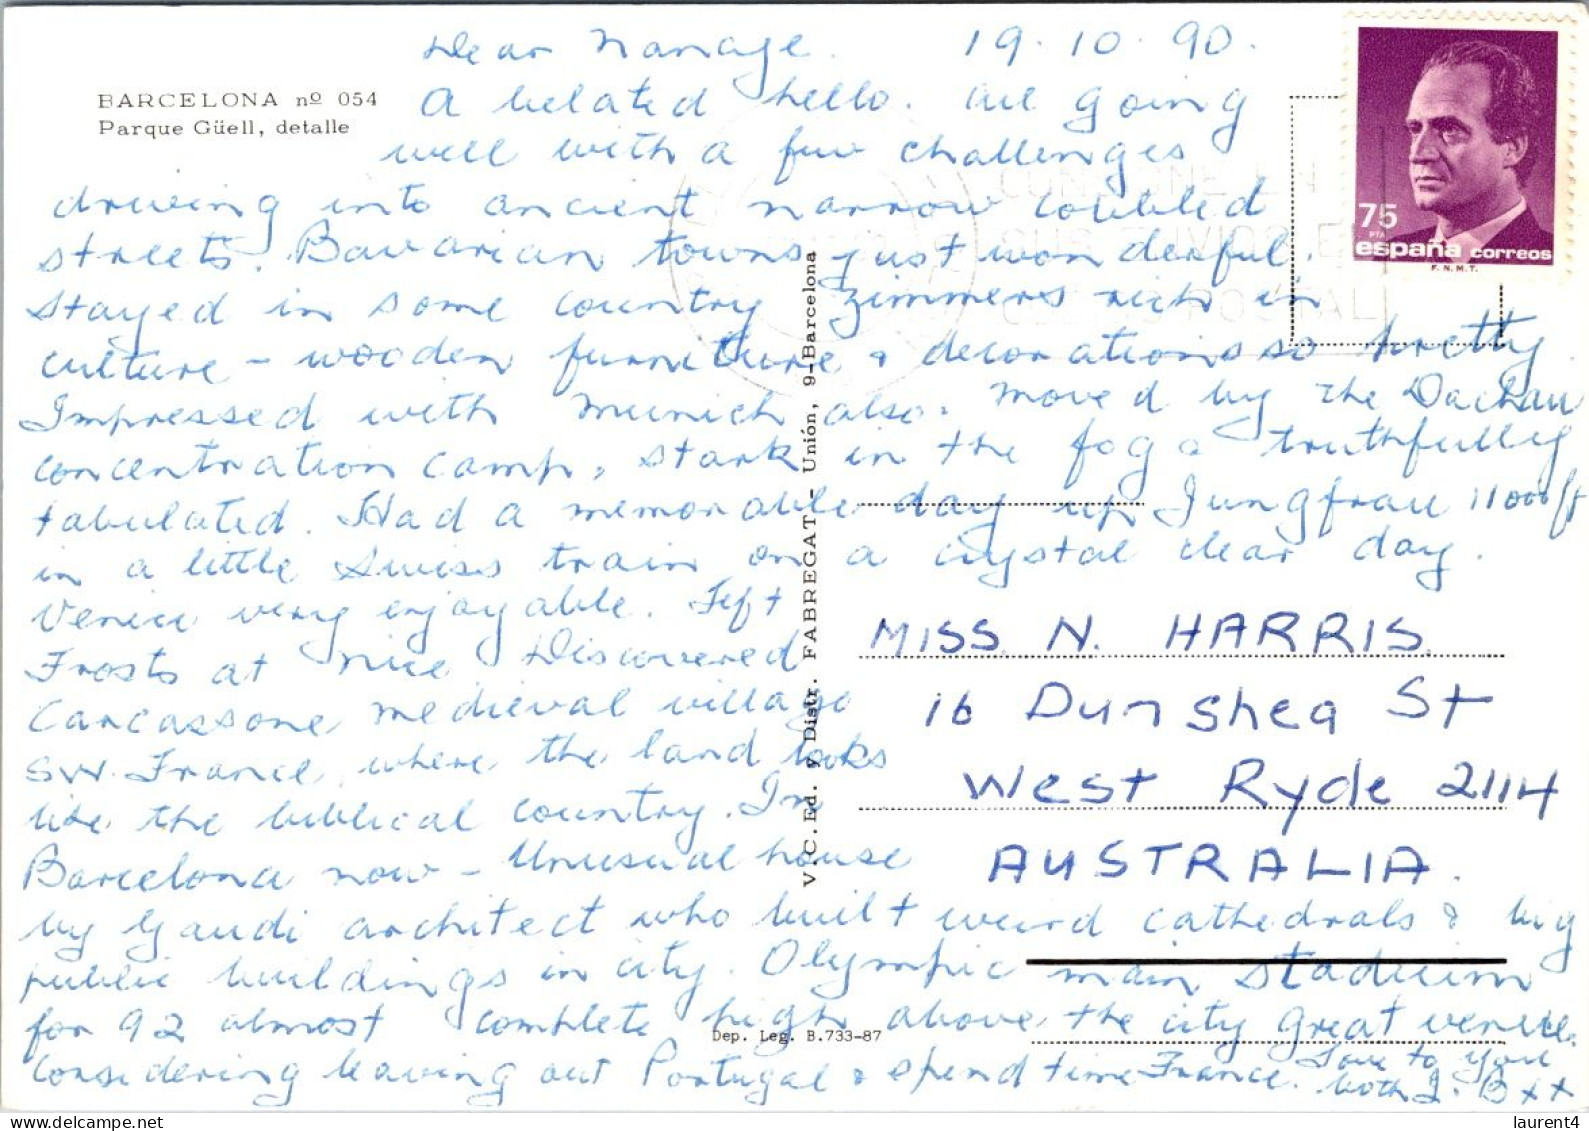 Dear Nanage. 19.10.90.
BARCELONA nº 054
Parque Güell, detalle
A belated hello. All going
well with a few challenges
driving into ancient narrow cobbled
streets. Bavarian towns just wonderful.
Stayed in some country zimmers rich in
culture - wooden furniture & decorations so pretty
Impressed with Munich also. Moved by the Dachau
concentration camp, stark in the fog & truthfully
tabulated. Had a memorable day up Jungfrau 11000ft
in a little Swiss train on a crystal clear day.
Venice very enjoyable. Left
Frosts at Nice Discovered
Carcassone, medieval village
SW. France, where the land looks
like the biblical country. In
Barcelona now - Unusual house
by Gaudi architect who built weird cathedrals & big
public buildings in city. Olympic main stadium
for 92 almost complete high above the city great venue.
Considering leaving out Portugal & spend time France. Love to you
both J. B xx
MISS N. HARRIS
16 Dunshea St
West Ryde 2114
AUSTRALIA.
V.C. Ed. y Distr. FABREGAT - Unión, 9-Barcelona
Dep. Leg. B.733-87
75
PTA
españa correos
F.N.M.T.
laurent4